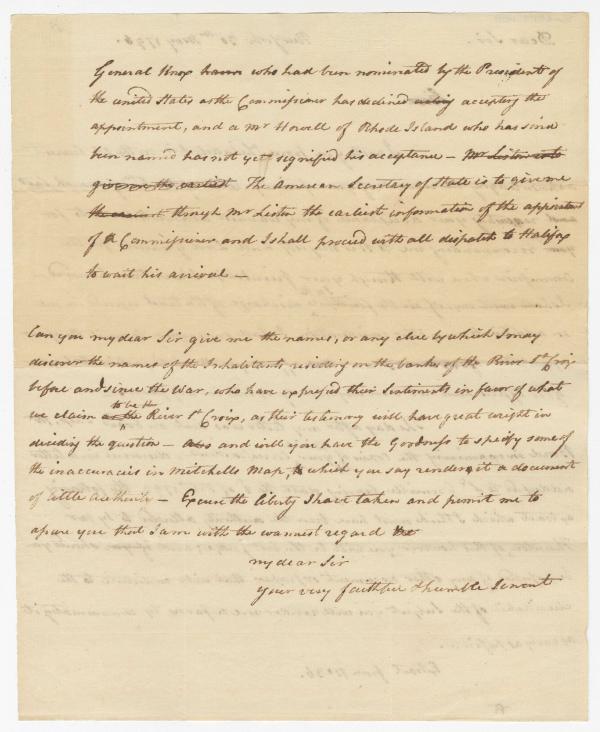 General Knox who had been nominated by the President of
the united States as the Commissioner has declined accepting the
appointment, and a Mr Howell of Rhode Island who has since
been named has not yet signified his acceptance — Mr Liston is to
give me the earliest The American Secretary of State is to give me
the earliest through Mr Liston the earliest information of the appointment
of a Commissioner and I shall proceed with all dispatch to Halifax
to wait his arrival —
Can you my dear Sir give me the names, or any clue by which I may
discover the names of the Inhabitants residing on the banks of the River St Croix
before and since the War, who have expressed their Sentiments in favor of what
to be the
we claim as the River St Croix, as their testimony will have great weight in
deciding the question — and will you have the Goodness to specify some of
the inaccuracies in Mitchells Map, which you say renders it a document
of little authority — Excuse the liberty I have taken and permit me to
assure you that I am with the warmest regard
my dear Sir
your very faithful & humble Servant